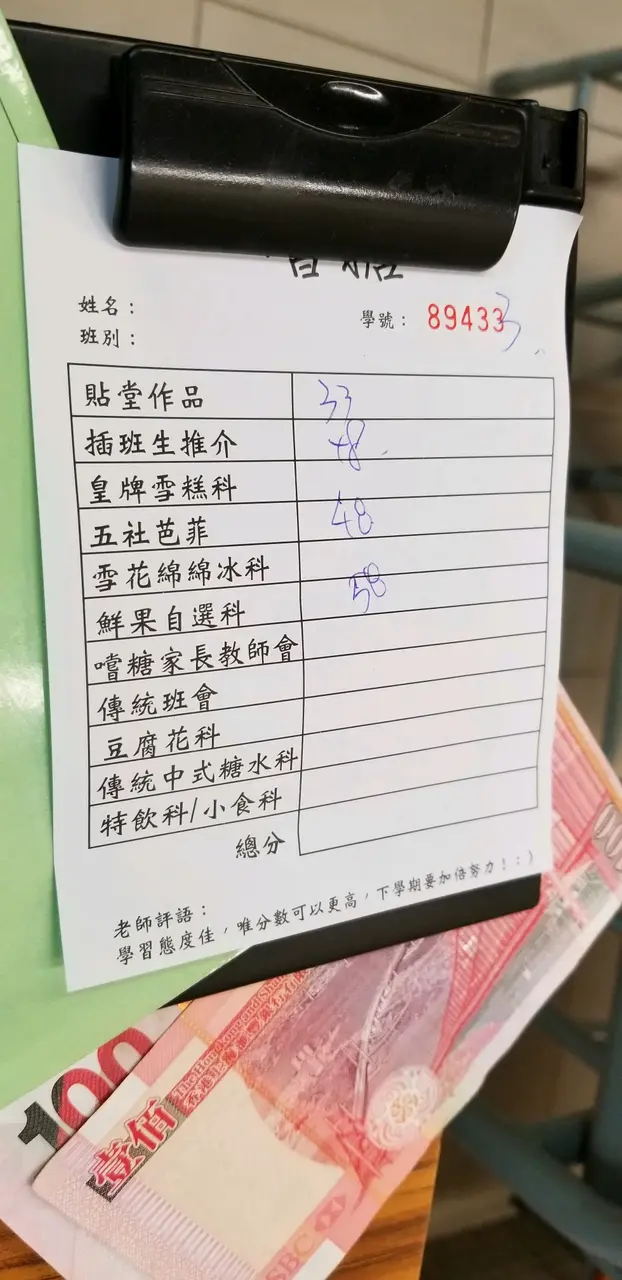 姓名：
學號： 89433 3
班別：
貼堂作品 33
插班生推介 48
皇牌雪糕科
五社芭菲 48
雪花綿綿冰科
鮮果自選科 58
嚐糖家長教師會
傳統班會
豆腐花科
傳統中式糖水科
特飲科/小食科
總分
老師評語：
學習態度佳，唯分數可以更高，下學期要加倍努力！：)
The Hongkong and Shang
香港上海滙豐銀行有限
100
壹佰
SBC